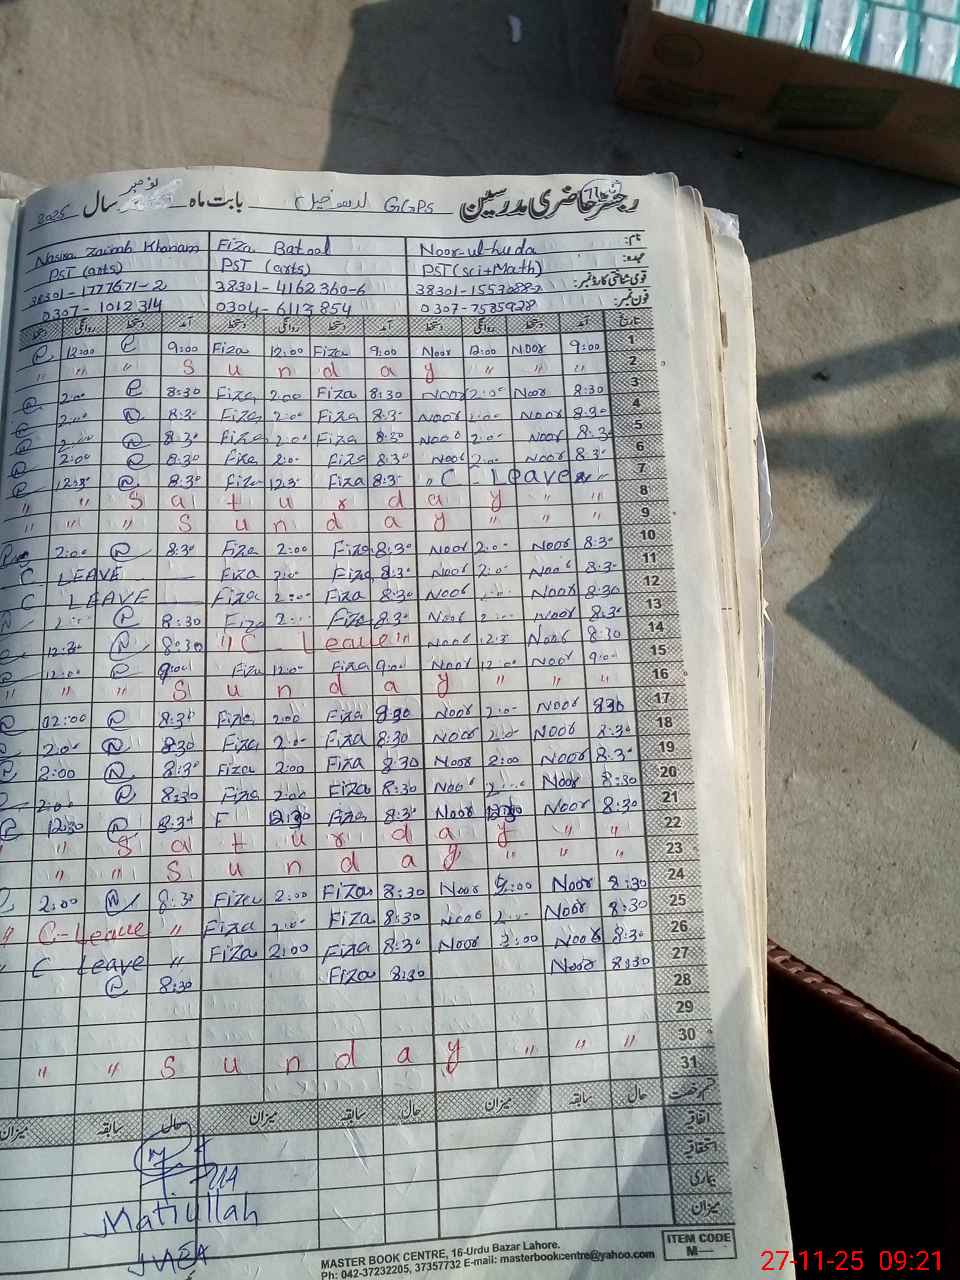 رجسٹر حاضری مدرسین GGPS لدھوخیل بابت ماہ نومبر سال 2025
Nasira Zainab Khanam Fiza Batool Noor-ul-huda نام:
PST (arts) PST (arts) PST (sci+Math) عہدہ:
38301-1777671-2 38301-4162360-6 قومی شناختی کارڈ نمبر:
0307-1012314 0304-6113854 0307-7585928 فون نمبر:
دستخط روانگی دستخط آمد دستخط روانگی دستخط آمد دستخط روانگی دستخط آمد تاریخ
12:00 9:00 Fiza 12:00 Fiza 9:00 Noor 12:00 Noor 9:00 1
" " " S u n d a y " " " 2
2:00 8:30 Fiza 2:00 Fiza 8:30 Noor 2:00 Noor 8:30 3
2:00 8:30 Fiza 2:00 Fiza 8:30 Noor 2:00 Noor 8:30 4
2:00 8:30 Fiza 2:00 Fiza 8:30 Noor 2:00 Noor 8:30 5
2:00 8:30 Fiza 2:00 Fiza 8:30 Noor 2:00 Noor 8:30 6
12:30 8:30 Fiza 12:30 Fiza 8:30 " C - Leave 7
" " S a t u r d a y " " 8
" " " S u n d a y " " " 9
2:00 8:30 Fiza 2:00 Fiza 8:30 Noor 2:00 Noor 8:30 10
C LEAVE — Fiza 2:00 Fiza 8:30 Noor 2:00 Noor 8:30 11
C LEAVE — Fiza 2:00 Fiza 8:30 Noor 2:00 Noor 8:30 12
2:00 8:30 Fiza 2:00 Fiza 8:30 Noor 2:00 Noor 8:30 13
12:30 8:30 " C Leave " Noor 12:30 Noor 8:30 14
12:00 9:00 Fiza 12:00 Fiza 9:00 Noor 12:00 Noor 9:00 15
" " " S u n d a y " " " 16
02:00 8:30 Fiza 2:00 Fiza 8:30 Noor 2:00 Noor 8:30 17
2:00 8:30 Fiza 2:00 Fiza 8:30 Noor 2:00 Noor 8:30 18
2:00 8:30 Fiza 2:00 Fiza 8:30 Noor 2:00 Noor 8:30 19
2:00 8:30 Fiza 2:00 Fiza 8:30 Noor 2:00 Noor 8:30 20
12:30 8:30 F 12:30 Fiza 8:30 Noor 12:30 Noor 8:30 21
" " S a t u r d a y " " 22
" " " S u n d a y " " " 23
2:00 8:30 Fiza 2:00 Fiza 8:30 Noor 2:00 Noor 8:30 24
" C-Leave " Fiza 2:00 Fiza 8:30 Noor 2:00 Noor 8:30 25
" C Leave " Fiza 2:00 Fiza 8:30 Noor 2:00 Noor 8:30 26
8:30 Fiza 8:30 Noor 8:30 27
28
29
" " S u n d a y " " " 30
31
میزان سابقہ حال میزان سابقہ حال میزان سابقہ حال قسم رخصت
اتفاقیہ
استحقاقیہ
بیماری
میزان
Matiullah
MASTER BOOK CENTRE, 16-Urdu Bazar Lahore.
Ph: 042-37232205, 37357732 E-mail: masterbookcentre@yahoo.com
ITEM CODE
M—
27-11-25 09:21